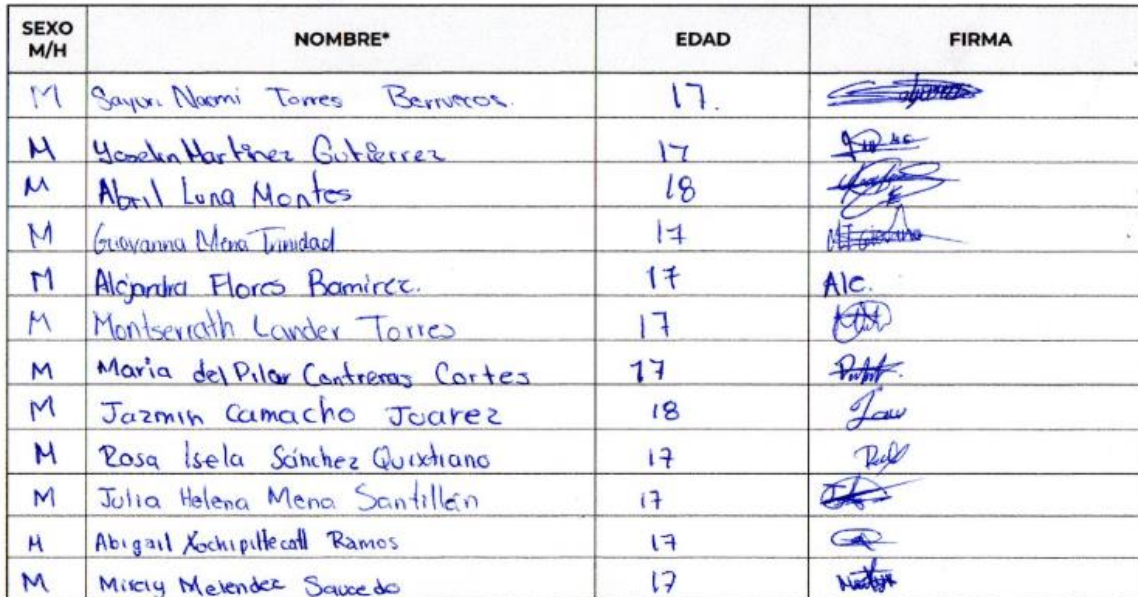 SEXO M/H NOMBRE* EDAD FIRMA
M Sayuri Naomi Torres Berruecos. 17.
M Yoselin Martinez Gutierrez 17
M Abril Luna Montes 18
M Giovanna Mena Trinidad 17
M Alejandra Flores Ramirez. 17 Ale.
M Montserrath Lander Torres 17
M Maria del Pilar Contreras Cortes 17
M Jazmin Camacho Juarez 18
M Rosa Isela Sánchez Quixtiano 17
M Julia Helena Mena Santillán 17
M Abigail Xochipiltecatl Ramos 17
M Melendez Saucedo 17